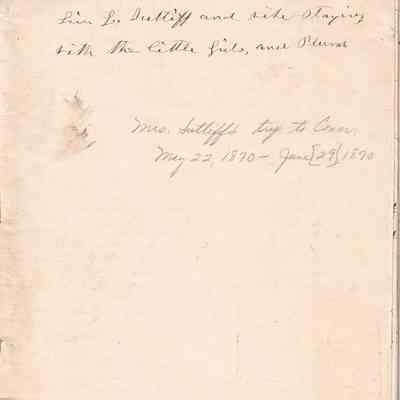 Levi L. Sutliff and wife staying
with the little girls, and Plum
Mrs. Sutliff's trip to Conn.
May 22, 1870 - June [29] 1870